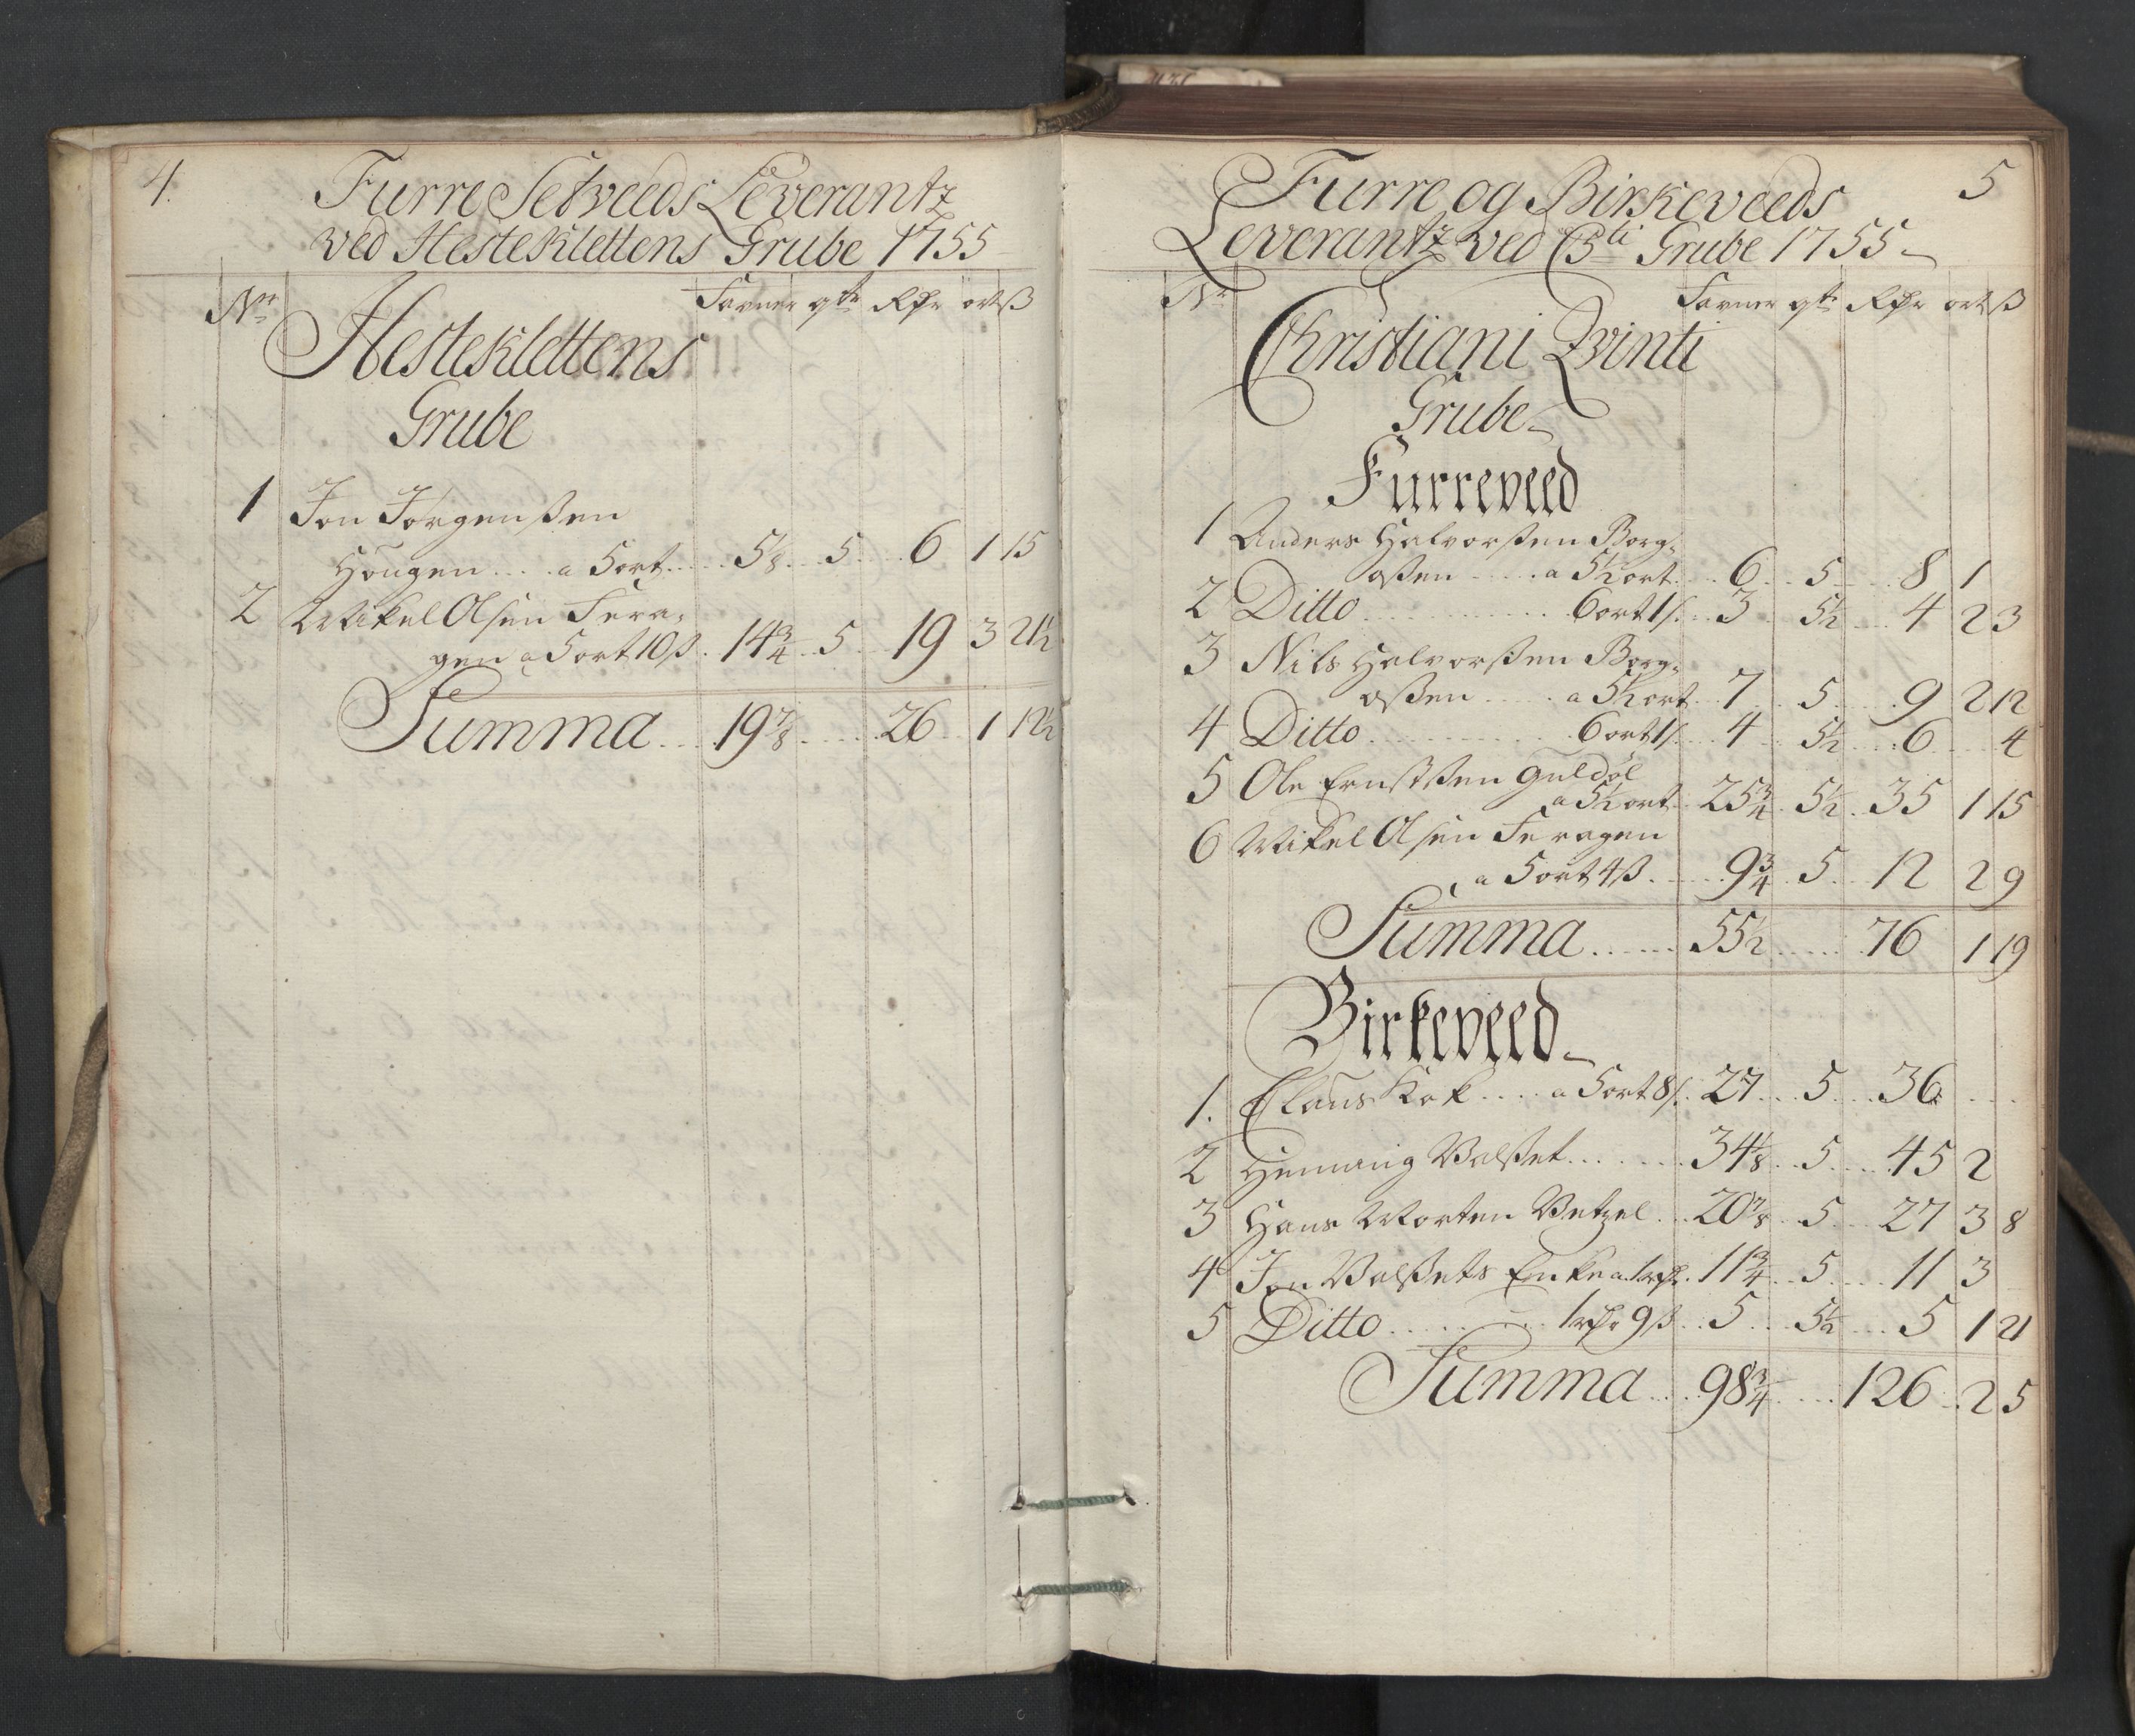 4.
Furre Setveeds Leverantz
ved Hesteklettens Grube 1755
Nr Favner qtr Rdr ort ß
Hesteklettens
Grube
1 Jon Jørgenßen
Hougen a 5 ort 5 1/8 5 6 1 15
2 Mikel Olsen Fera-
gen a 5 ort 10 ß 14 3/4 5 19 3 21 1/2
Summa 19 7/8 26 1 12 1/2
5
Furre og Birkeveeds
Leverantz ved C 5ti Grube 1755
Nr Favner qtr Rdr ort ß
Christiani Qvinti
Grube
Furreveed
1 Anders Halvorßen Borg-
aßen a 5 1/2 ort 6 5 8 1
2 Ditto 6 ort 1 ß 3 5 1/2 4 2 3
3 Nils Halvorßen Borg-
aßen a 5 1/2 ort 7 5 9 2 12
4 Ditto 6 ort 1 ß 4 5 1/2 6 4
5 Ole Ernstßen Guldal
a 5 1/2 ort 25 3/4 5 1/2 35 1 15
6 Mikel Olsen Feragen
a 5 ort 4 ß 9 3/4 5 12 2 9
Summa 55 1/2 76 1 19
Birkeveed
1. Claus Kok a 5 ort 8 ß 27 5 36
2 Henning Valßet 34 1/8 5 45 2
3 Hans Morten Vetzel 20 7/8 5 27 3 8
4 Jon Valßets Enke a 1 rdr 11 3/4 5 11 3
5 Ditto 1 rdr 9 ß 5 5 1/2 5 1 21
Summa 98 3/4 126 2 5